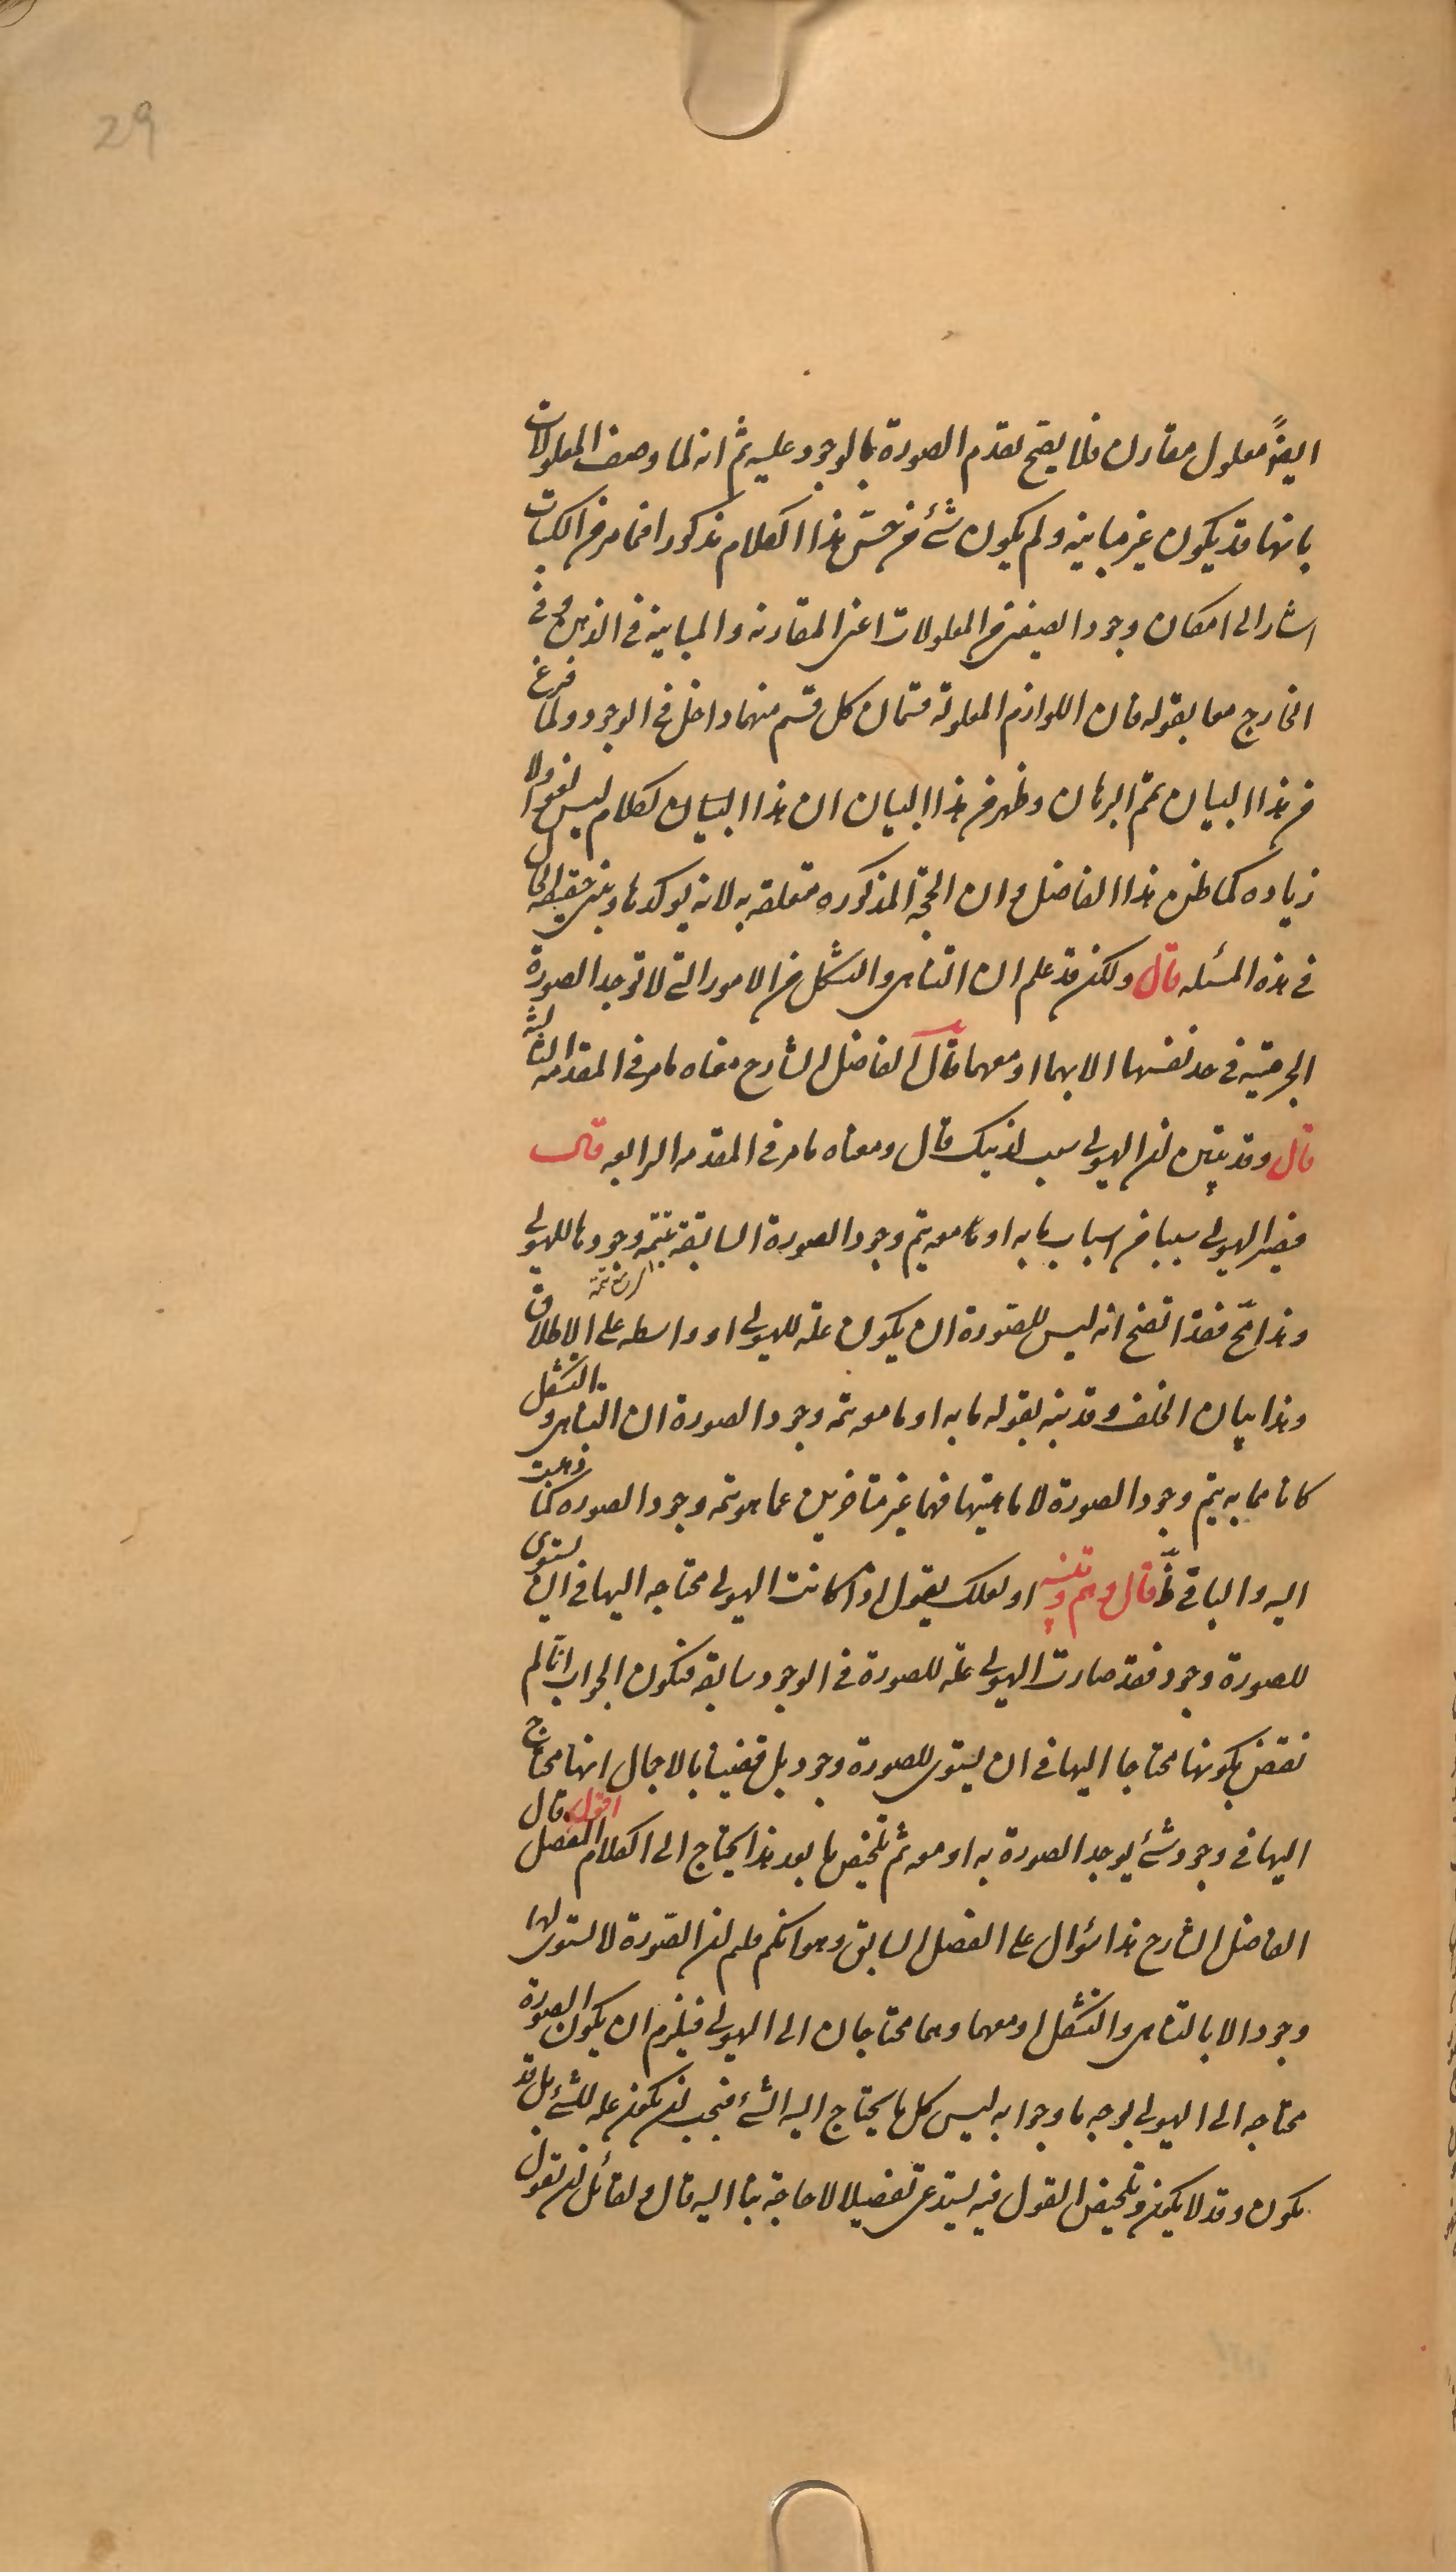 29
ايضًا معلول مقارن فلا يصح تقدم الصورة بالوجود عليه ثم انه لما وصف المعلولات
بانها قد يكون غير مباينه ولم يكون شئ من جنس هذا الكلام مذكورا فيما مر فى الكتاب
اشار الى امكان وجود الصنفين من المعلولات اعنى المقارنه والمباينه فى الذهن وفى
الخارج معا بقوله فان اللوازم المعلولة قسمان كل قسم منهما داخل فى الوجود ولما فرغ
من هذا البيان تمم البرهان وظهر من هذا البيان ان هذا البيان لكلام ليس لغوا ولا
زياده كما ظن هذا الفاضل وان الحجة المذكوره متعلقه به لانه يوكدها ويبنى حقيقه الحال
فى هذه المسئله قال ولكن قد علم ان التناهى والتشكل من الامور التى لا توجد الصورة
الجرميّه فى حد نفسها الا بهما او معهما قال الفاضل الشارح معناه ما مر فى المقدمه الثالثه
قال وقد تبيّن ان الهيولى سبب لذينك قال ومعناه ما مر فى المقدمه الرابعه قال
فيصير الهيولى سببا من اسباب ما به او ما معه يتم وجود الصورة السابقة بتتمه وجودها للهيولى
وهذا مح فقد اتضح انه ليس للصورة ان يكون علة للهيولى او واسطه على الاطلاق
وهذا بيان الخلف وقد نبّه بقوله ما به او ما معه يتمه وجود الصورة ان التناهى والتشكل
كانا مما به يتم وجود الصورة لا ماهيتها فهما غير متاخرين عما هو يتمه وجود الصوره كما ذهبت
اليه والباقى ظّ قال وهم وتنبيه او لعلك يقول اذا كانت الهيولى محتاجه اليها فى ان يستوى
للصورة وجود فقد صارت الهيولى علة للصورة فى الوجود سابقه فتكون الجواب انّا لم
نقض بكونها محتاجا اليها فى ان يستوى للصورة وجود بل قضينا بالاجمال انها محتاج
اليها فى وجود شئ يوجد الصورة به او معه ثم تلخيص ما بعد هذا يحتاج الى الكلام المفصل اقول قال
الفاضل الشارح هذا سؤال على الفصل السابق وهو انكم قلتم ان الصورة لا يستوى لها
وجود الا بالتناهى والتشكل او معهما وهما محتاجان الى الهيولى فيلزم ان يكون الصورة
محتاجه الى الهيولى بوجه ما وجوابه ليس كل ما يحتاج اليه الشئ فيجب ان يكون علة للشئ بل قد
يكون وقد لا يكون وتلخيص القول فيه يستدعى تفصيلا لا حاجة بنا اليه قال ولقائل ان يقول